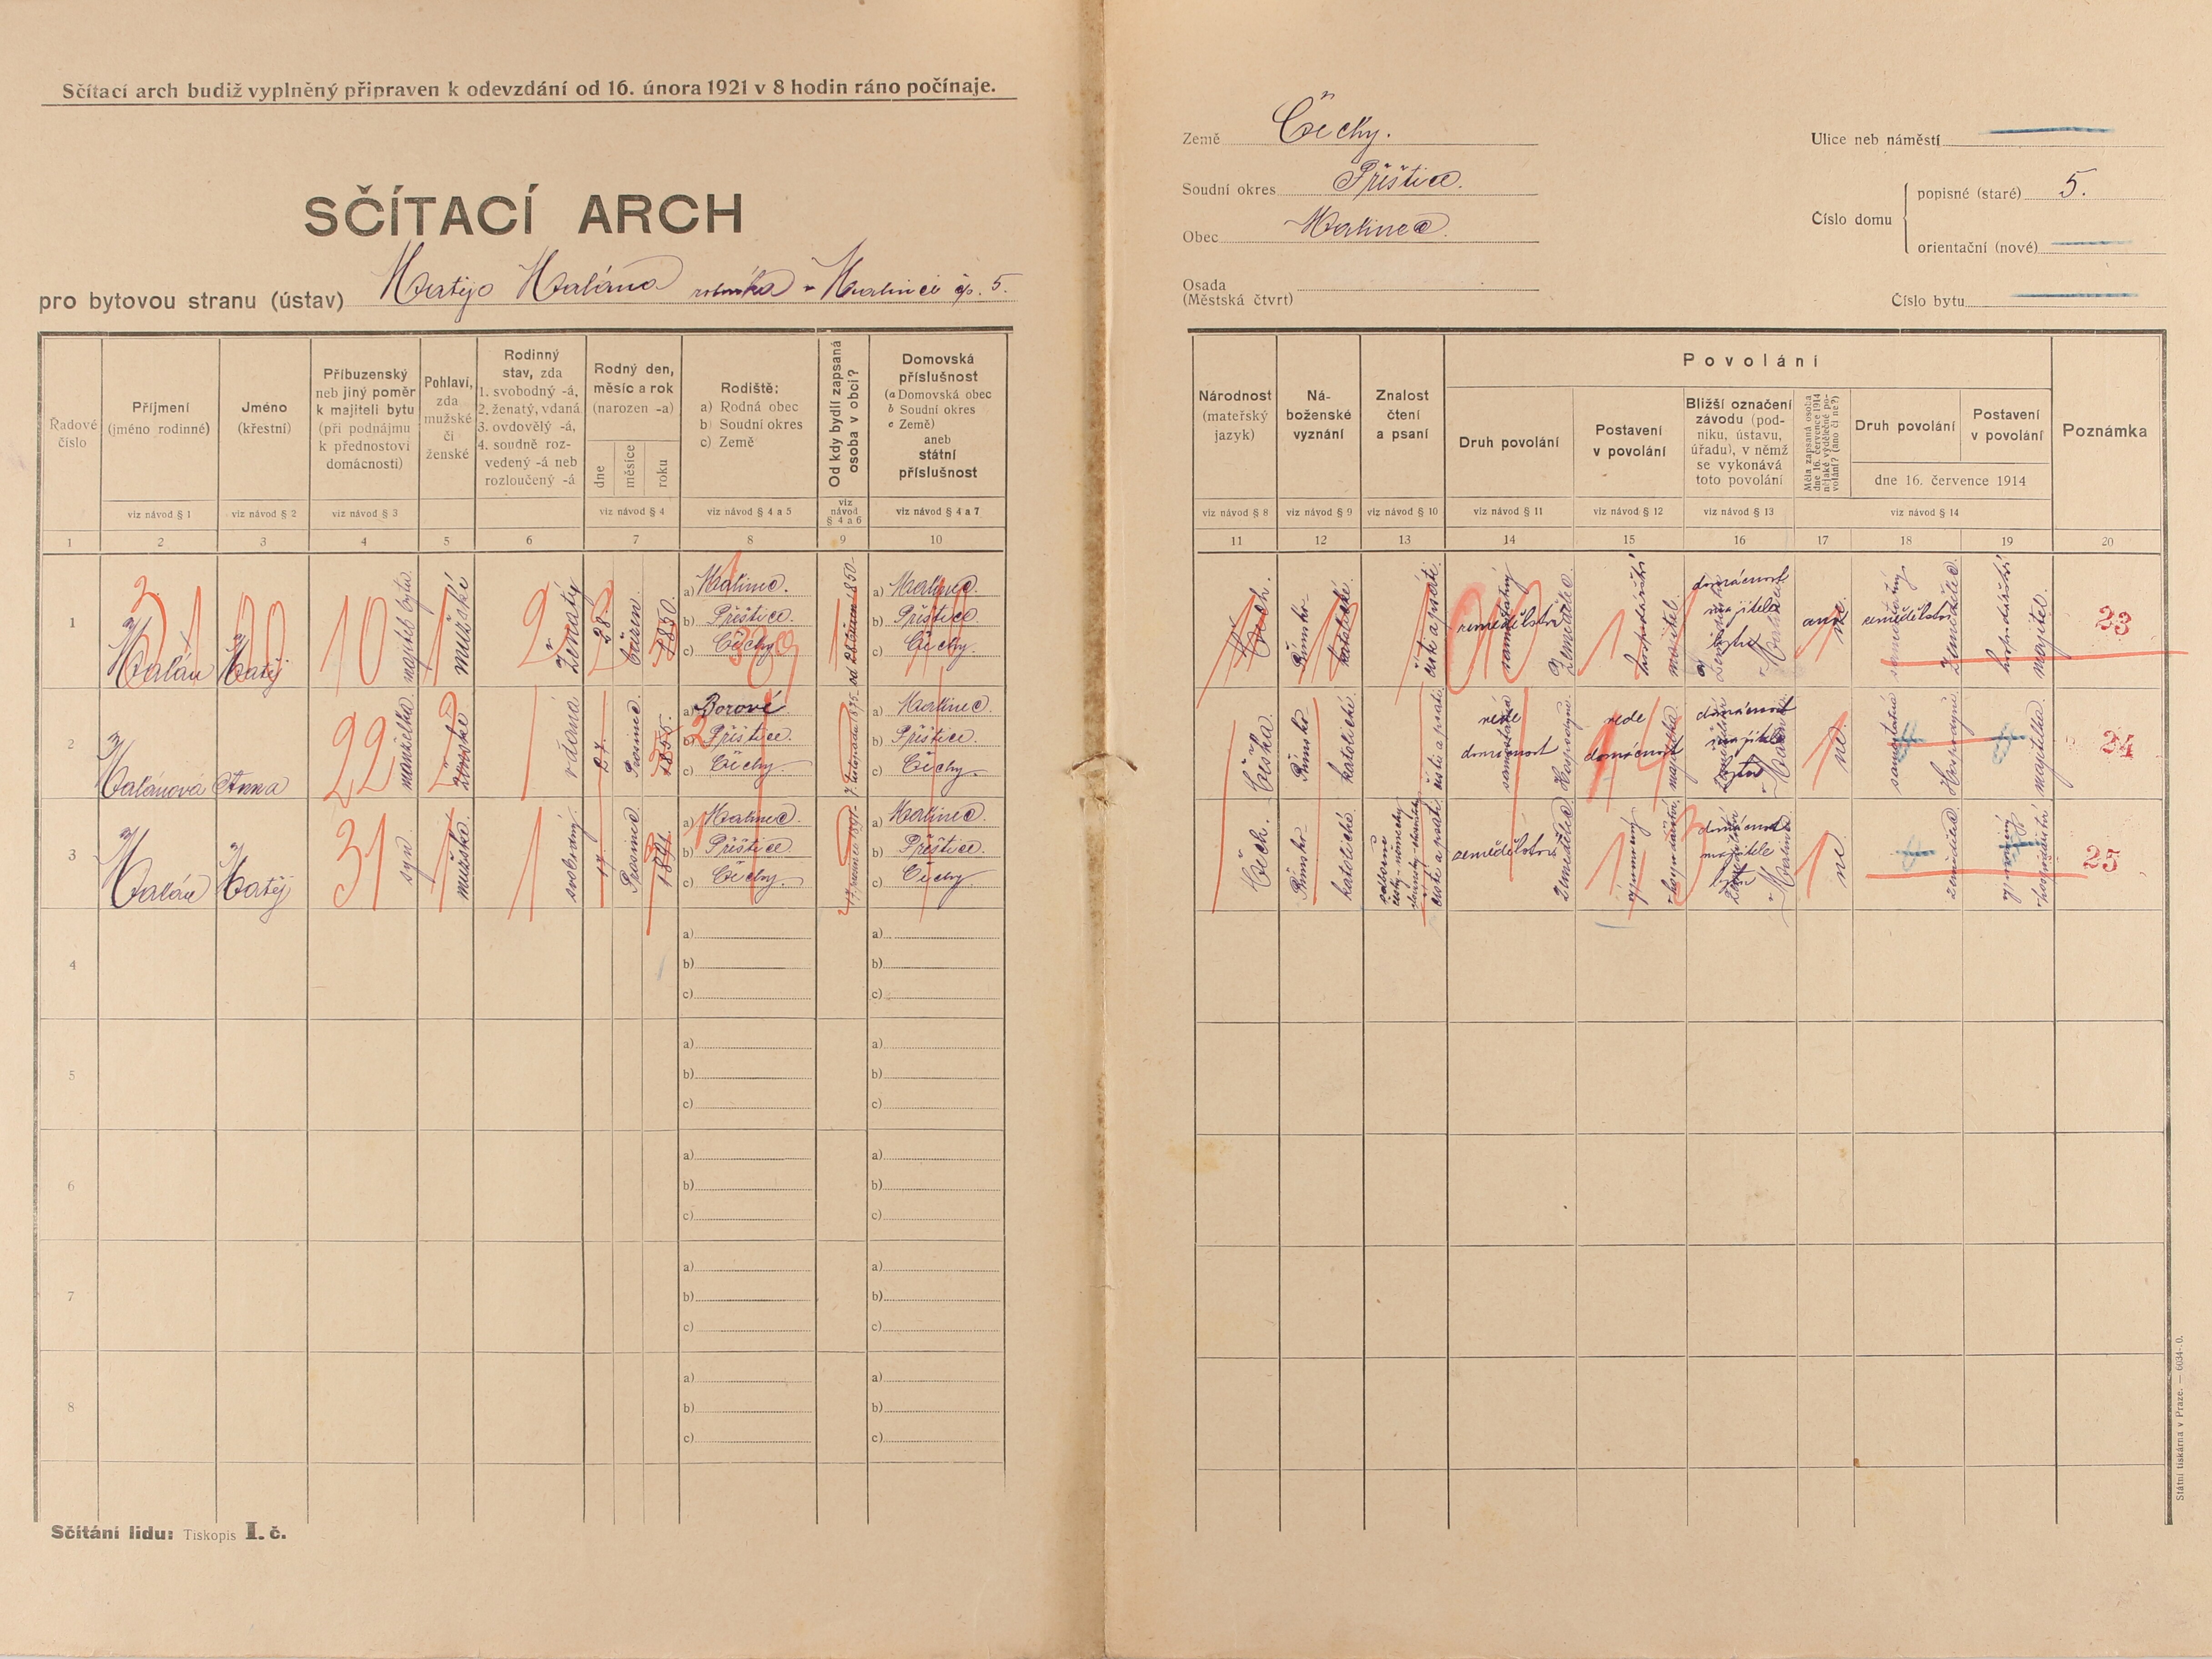 Sčítací arch budiž vyplněný připraven k odevzdání od 16. února 1921 v 8 hodin ráno počínaje.
SČÍTACÍ ARCH
pro bytovou stranu (ústav) Matěje Halána v Malinci čp. 5.
Země Čechy.
Soudní okres Přeštice.
Obec Malinec.
Osada
(Městská čtvrt)
Ulice neb náměstí
Číslo domu
popisné (staré) 5.
orientační (nové)
Číslo bytu
Řadové číslo
Příjmení
(jméno rodinné)
viz návod § 1
Jméno
(křestní)
viz návod § 2
Příbuzenský
neb jiný poměr
k majiteli bytu
(při podnájmu
k přednostovi
domácnosti)
viz návod § 3
Pohlaví,
zda
mužské
či
ženské
Rodinný
stav, zda
1. svobodný -á,
2. ženatý, vdaná
3. ovdovělý -á,
4. soudně roz-
vedený -á neb
rozloučený -á
Rodný den,
měsíc a rok
(narozen -a)
dne
měsíce
roku
viz návod § 4
Rodiště:
a) Rodná obec
b) Soudní okres
c) Země
viz návod § 4 a 5
Od kdy bydlí zapsaná
osoba v obci?
viz
návod
§ 4 a 6
Domovská
příslušnost
(a Domovská obec
b Soudní okres
c Země)
aneb
státní
příslušnost
viz návod § 4 a 7
Národnost
(mateřský
jazyk)
viz návod § 8
Ná-
boženské
vyznání
viz návod § 9
Znalost
čtení
a psaní
viz návod § 10
Povolání
Druh povolání
viz návod § 11
Postavení
v povolání
viz návod § 12
Bližší označení
závodu (pod-
niku, ústavu,
úřadu), v němž
se vykonává
toto povolání
viz návod § 13
Měla zapsaná osoba
dne 16. července 1914
nějaké výdělečné po-
volání? (ano či ne?)
Druh povolání
Postavení
v povolání
dne 16. července 1914
viz návod § 14
Poznámka
1 2 3 4 5 6 7 8 9 10 11 12 13 14 15 16 17 18 19 20
1
Halán
Matěj
majitel bytu
mužské
ženatý
28.
1850.
a) Malinec.
b) Přeštice.
c) Čechy
a) Malinec.
b) Přeštice.
c) Čechy.
Čech.
Římsko-
katolické.
čísti a psáti
zemědělství
samostatný
zemědělec.
hospodářství
majitel.
domácnost
majitele
ano
ne.
zemědělství
zemědělec
hospodářství
majitel.
23
2
Halánová
Anna
manželka.
ženské
vdaná
27.
Prosince.
1855.
a) Borové.
b) Přeštice.
c) Čechy.
a) Malinec.
b) Přeštice.
c) Čechy.
Češka.
Římsko-
katolické.
čísti a psáti
vede
domácnost
samostatná
Hospodyně.
vede
domácnost
majitelka.
domácnost
majitele
ne.
samostatná
Hospodyně.
majitelka.
24
3
Halán
Matěj
syn.
mužské.
svobodný.
17.
Prosince.
1891.
a) Malinec.
b) Přeštice
c) Čechy.
a) Malinec.
b) Přeštice.
c) Čechy.
Čech.
Římsko-
katolické
čísti a psáti.
zemědělství
zemědělec
výpomocný
v hospodářství.
domácnost
majitele
v Malinci.
ne
zemědělec
výpomocný
v hospodářství
25
4
a)
b)
c)
a)
b)
c)
5
a)
b)
c)
a)
b)
c)
6
a)
b)
c)
a)
b)
c)
7
a)
b)
c)
a)
b)
c)
8
a)
b)
c)
a)
b)
c)
Sčítání lidu: Tiskopis I. č.
Státní tiskárna v Praze. — 6034-20.